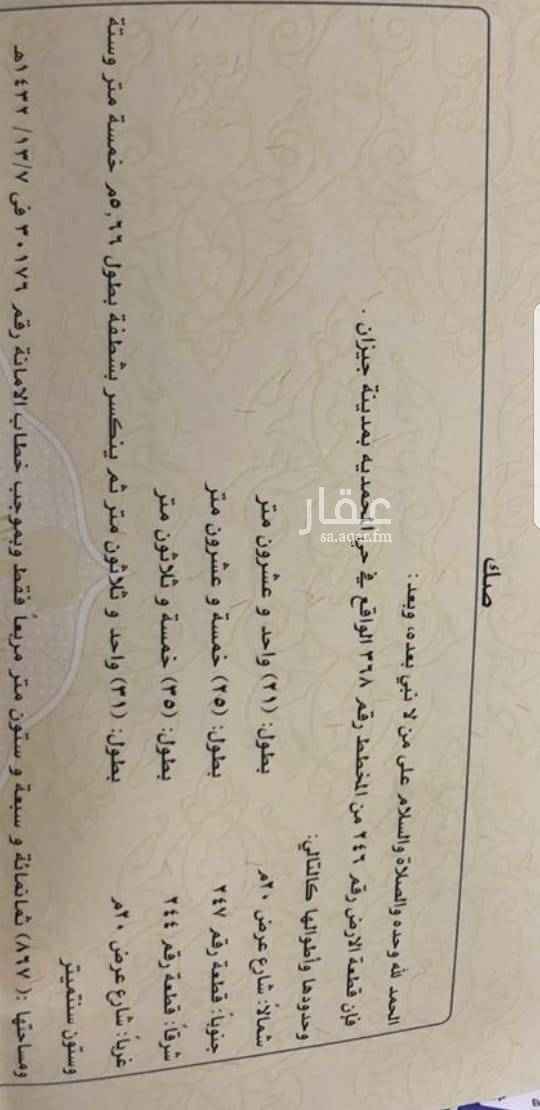 صك
الحمد لله وحده والصلاة والسلام على من لا نبي بعده، وبعد:
فإن قطعة الارض رقم ٢٤٦ من المخطط رقم ٣٦٨ الواقع في حي المحمديه بمدينة جيزان .
وحدودها وأطوالها كالتالي:
شمالاً: شارع عرض ٢٠م بطول: (٢١) واحد و عشرون متر
جنوباً: قطعة رقم ٢٤٧ بطول: (٢٥) خمسة و عشرون متر
شرقاً: قطعة رقم ٢٤٤ بطول: (٣٥) خمسة و ثلاثون متر
غرباً: شارع عرض ٢٠م بطول: (٣١) واحد و ثلاثون متر ثم ينكسر بشطفة بطول ٥,٦٦م خمسة متر وستة
وستون سنتميتر
ومساحتها :( ٨٦٧) ثمانمائة و سبعة و ستون متر مربعاً فقط وبموجب خطاب الامانة رقم ٣٠١٧٦ في ١٣/٧/ ١٤٣٢هـ
عقار
sa.aqar.fm